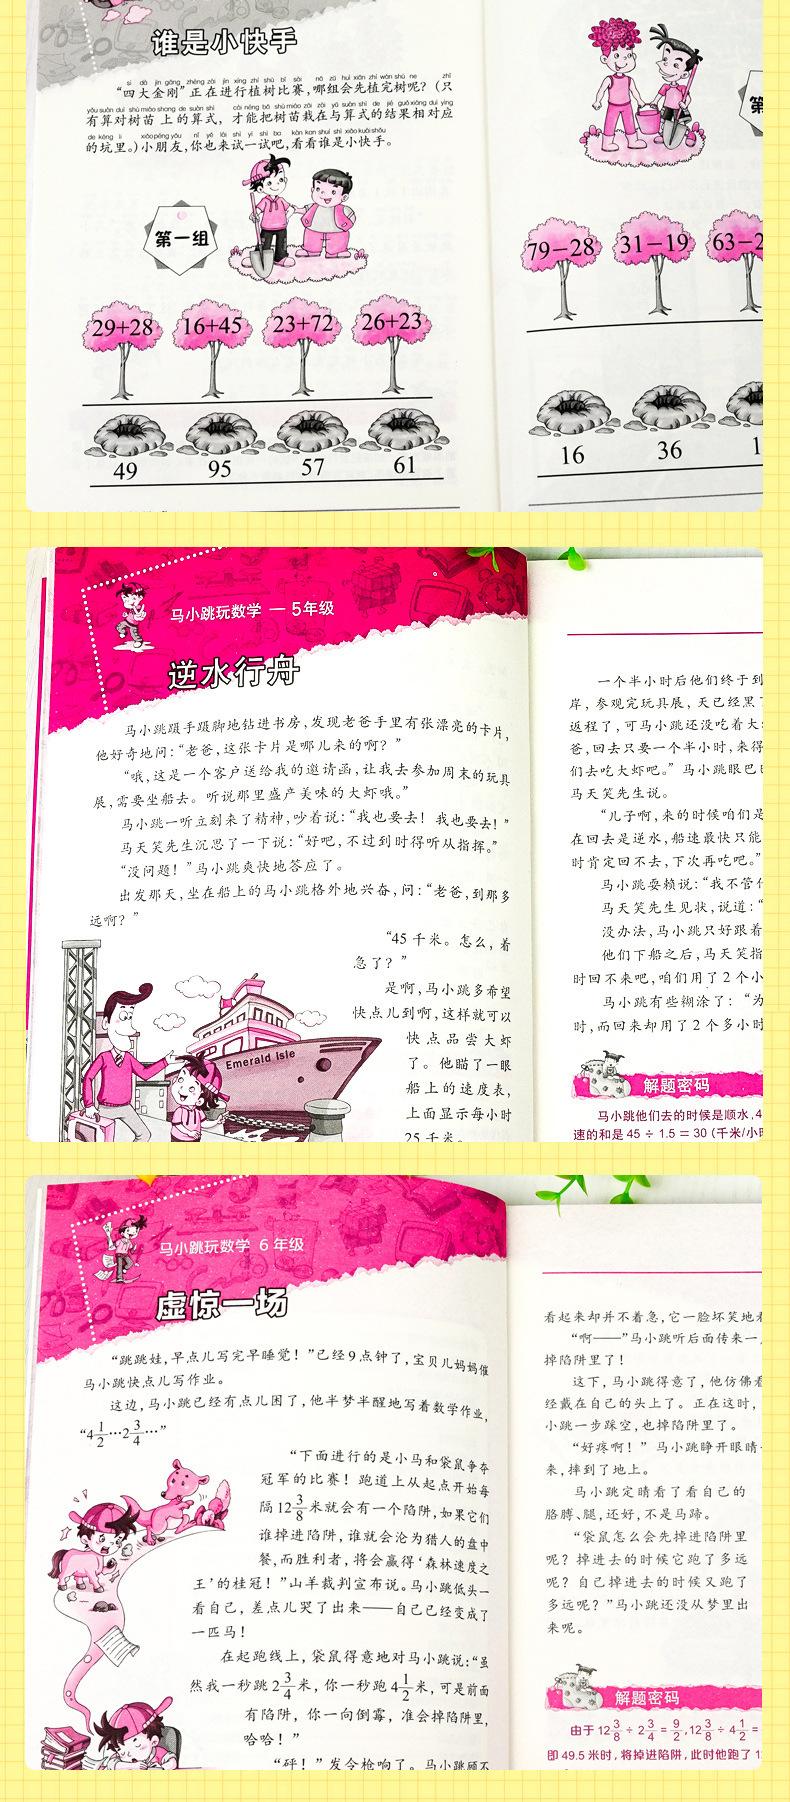 谁是小快手
“四大金刚”正在进行植树比赛,哪组会先植完树呢?(只
有算对树苗上的算式,才能把树苗栽在与算式的结果相对应
的坑里。)小朋友,你也来试一试吧,看看谁是小快手。
第一组
29+28 16+45 23+72 26+23
49 95 57 61
79−28 31−19 63−2
16 36 1
马小跳玩数学 — 5年级
逆水行舟
马小跳蹑手蹑脚地钻进书房,发现老爸手里有张漂亮的卡片,
他好奇地问:“老爸,这张卡片是哪儿来的啊?”
“哦,这是一个客户送给我的邀请函,让我去参加周末的玩具
展,需要坐船去。听说那里盛产美味的大虾哦。”
马小跳一听立刻来了精神,吵着说:“我也要去!我也要去!”
马天笑先生沉思了一下说:“好吧,不过到时得听从指挥。”
“没问题!”马小跳爽快地答应了。
出发那天,坐在船上的马小跳格外地兴奋,问:“老爸,到那多
远啊?”
“45 千米。怎么,着
急了?”
是啊,马小跳多希望
快点儿到啊,这样就可以
快点品尝大虾
了。他瞄了一眼
船上的速度表,
上面显示每小时
25 千米。
Emerald Isle
一个半小时后他们终于到
岸,参观完玩具展,天已经黑
返程了,可马小跳还没吃着大
爸,回去只要一个半小时,来得
们去吃大虾吧。”马小跳眼巴
马天笑先生说。
“儿子啊,来的时候咱们是
在回去是逆水,船速最快只能
时肯定回不去,下次再吃吧。”
马小跳耍赖说:“我不管
马天笑先生见状,说道:“
没办法,马小跳只好跟着
他们下船之后,马天笑指
时回不来吧,咱们用了 2 个小
马小跳有些糊涂了:“为
时,而回来却用了 2 个多小时
解题密码
马小跳他们去的时候是顺水,4
速的和是 45 ÷ 1.5 = 30 (千米/小时
马小跳玩数学 6 年级
虚惊一场
“跳跳娃,早点儿写完早睡觉!”已经9点钟了,宝贝儿妈妈催
马小跳快点儿写作业。
这边,马小跳已经有点儿困了,他半梦半醒地写着数学作业,
“4 1/2 …2 3/4 …”
“下面进行的是小马和袋鼠争夺
冠军的比赛!跑道上从起点开始每
隔 12 3/8 米就会有一个陷阱,如果它们
谁掉进陷阱,谁就会沦为猎人的盘中
餐,而胜利者,将会赢得‘森林速度之
王’的桂冠!”山羊裁判宣布说。马小跳低头一
看自己,差点儿哭了出来——自己已经变成了
一匹马!
在起跑线上,袋鼠得意地对马小跳说:“虽
然我一秒跳 2 3/4 米,你一秒跑 4 1/2 米,可是前面
有陷阱,你一向倒霉,准会掉陷阱里,
哈哈!”
“砰!”发令枪响了。马小跳顾不
看起来却并不着急,它一脸坏笑地
“啊——”马小跳听后面传来一
掉陷阱里了!
这下,马小跳得意了,他仿佛看
经戴在自己的头上了。正在这时,
小跳一步踩空,也掉陷阱里了。
“好疼啊!”马小跳睁开眼睛
来,摔到了地上。
马小跳定睛看了看自己的
胳膊、腿,还好,不是马蹄。
“袋鼠怎么会先掉进陷阱里
呢?掉进去的时候它跑了多远
呢?自己掉进去的时候又跑了
多远呢?”马小跳还没从梦里出
来呢。
解题密码
由于 12 3/8 ÷ 2 3/4 = 9/2 ,12 3/8 ÷ 4 1/2 =
即 49.5 米时,将掉进陷阱,此时他跑了 1